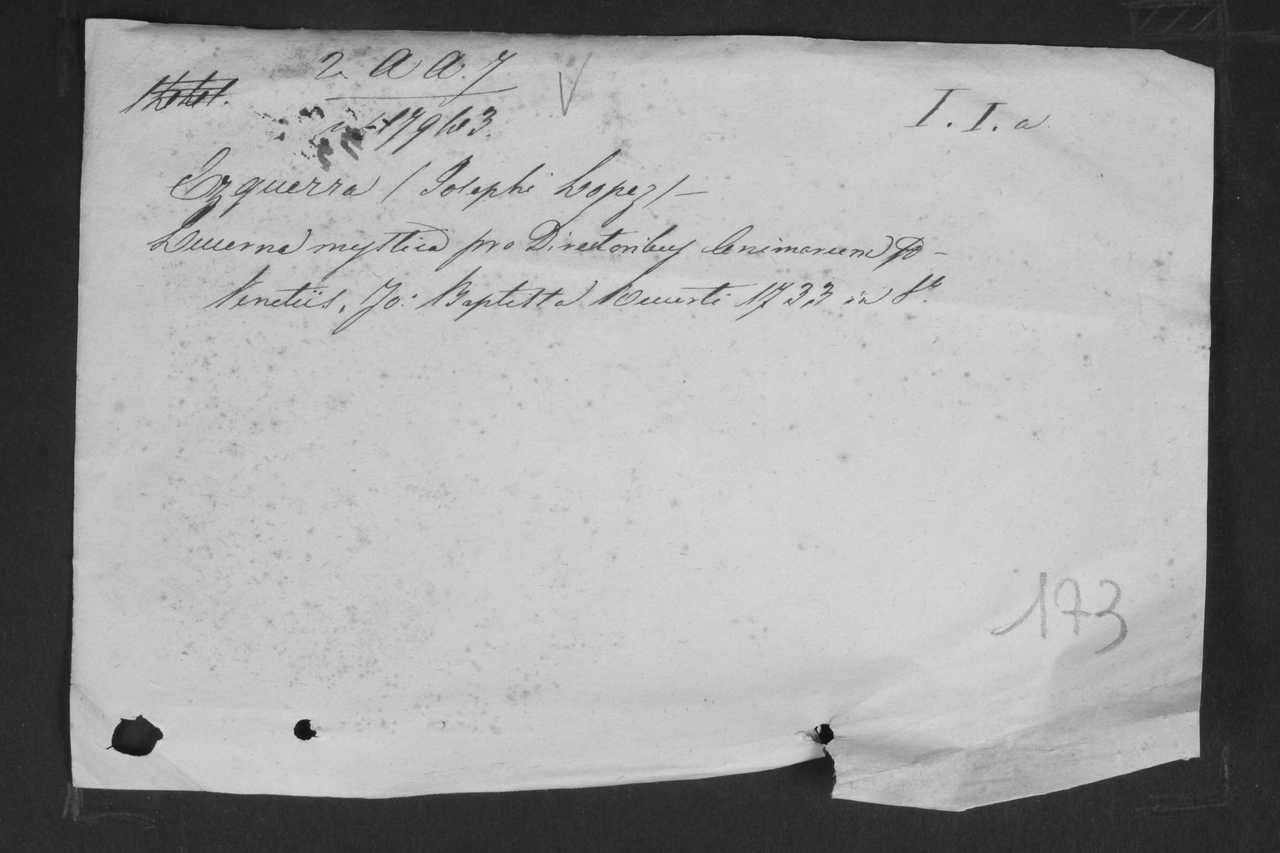 2. A A. 7
I. I. a
Ezquerra (Josephi Lopez) –
Lucerna mystica pro Directoribus Animarum &c –
Venetiis, Jo: Baptista Recurti 1733 in 8º.
173